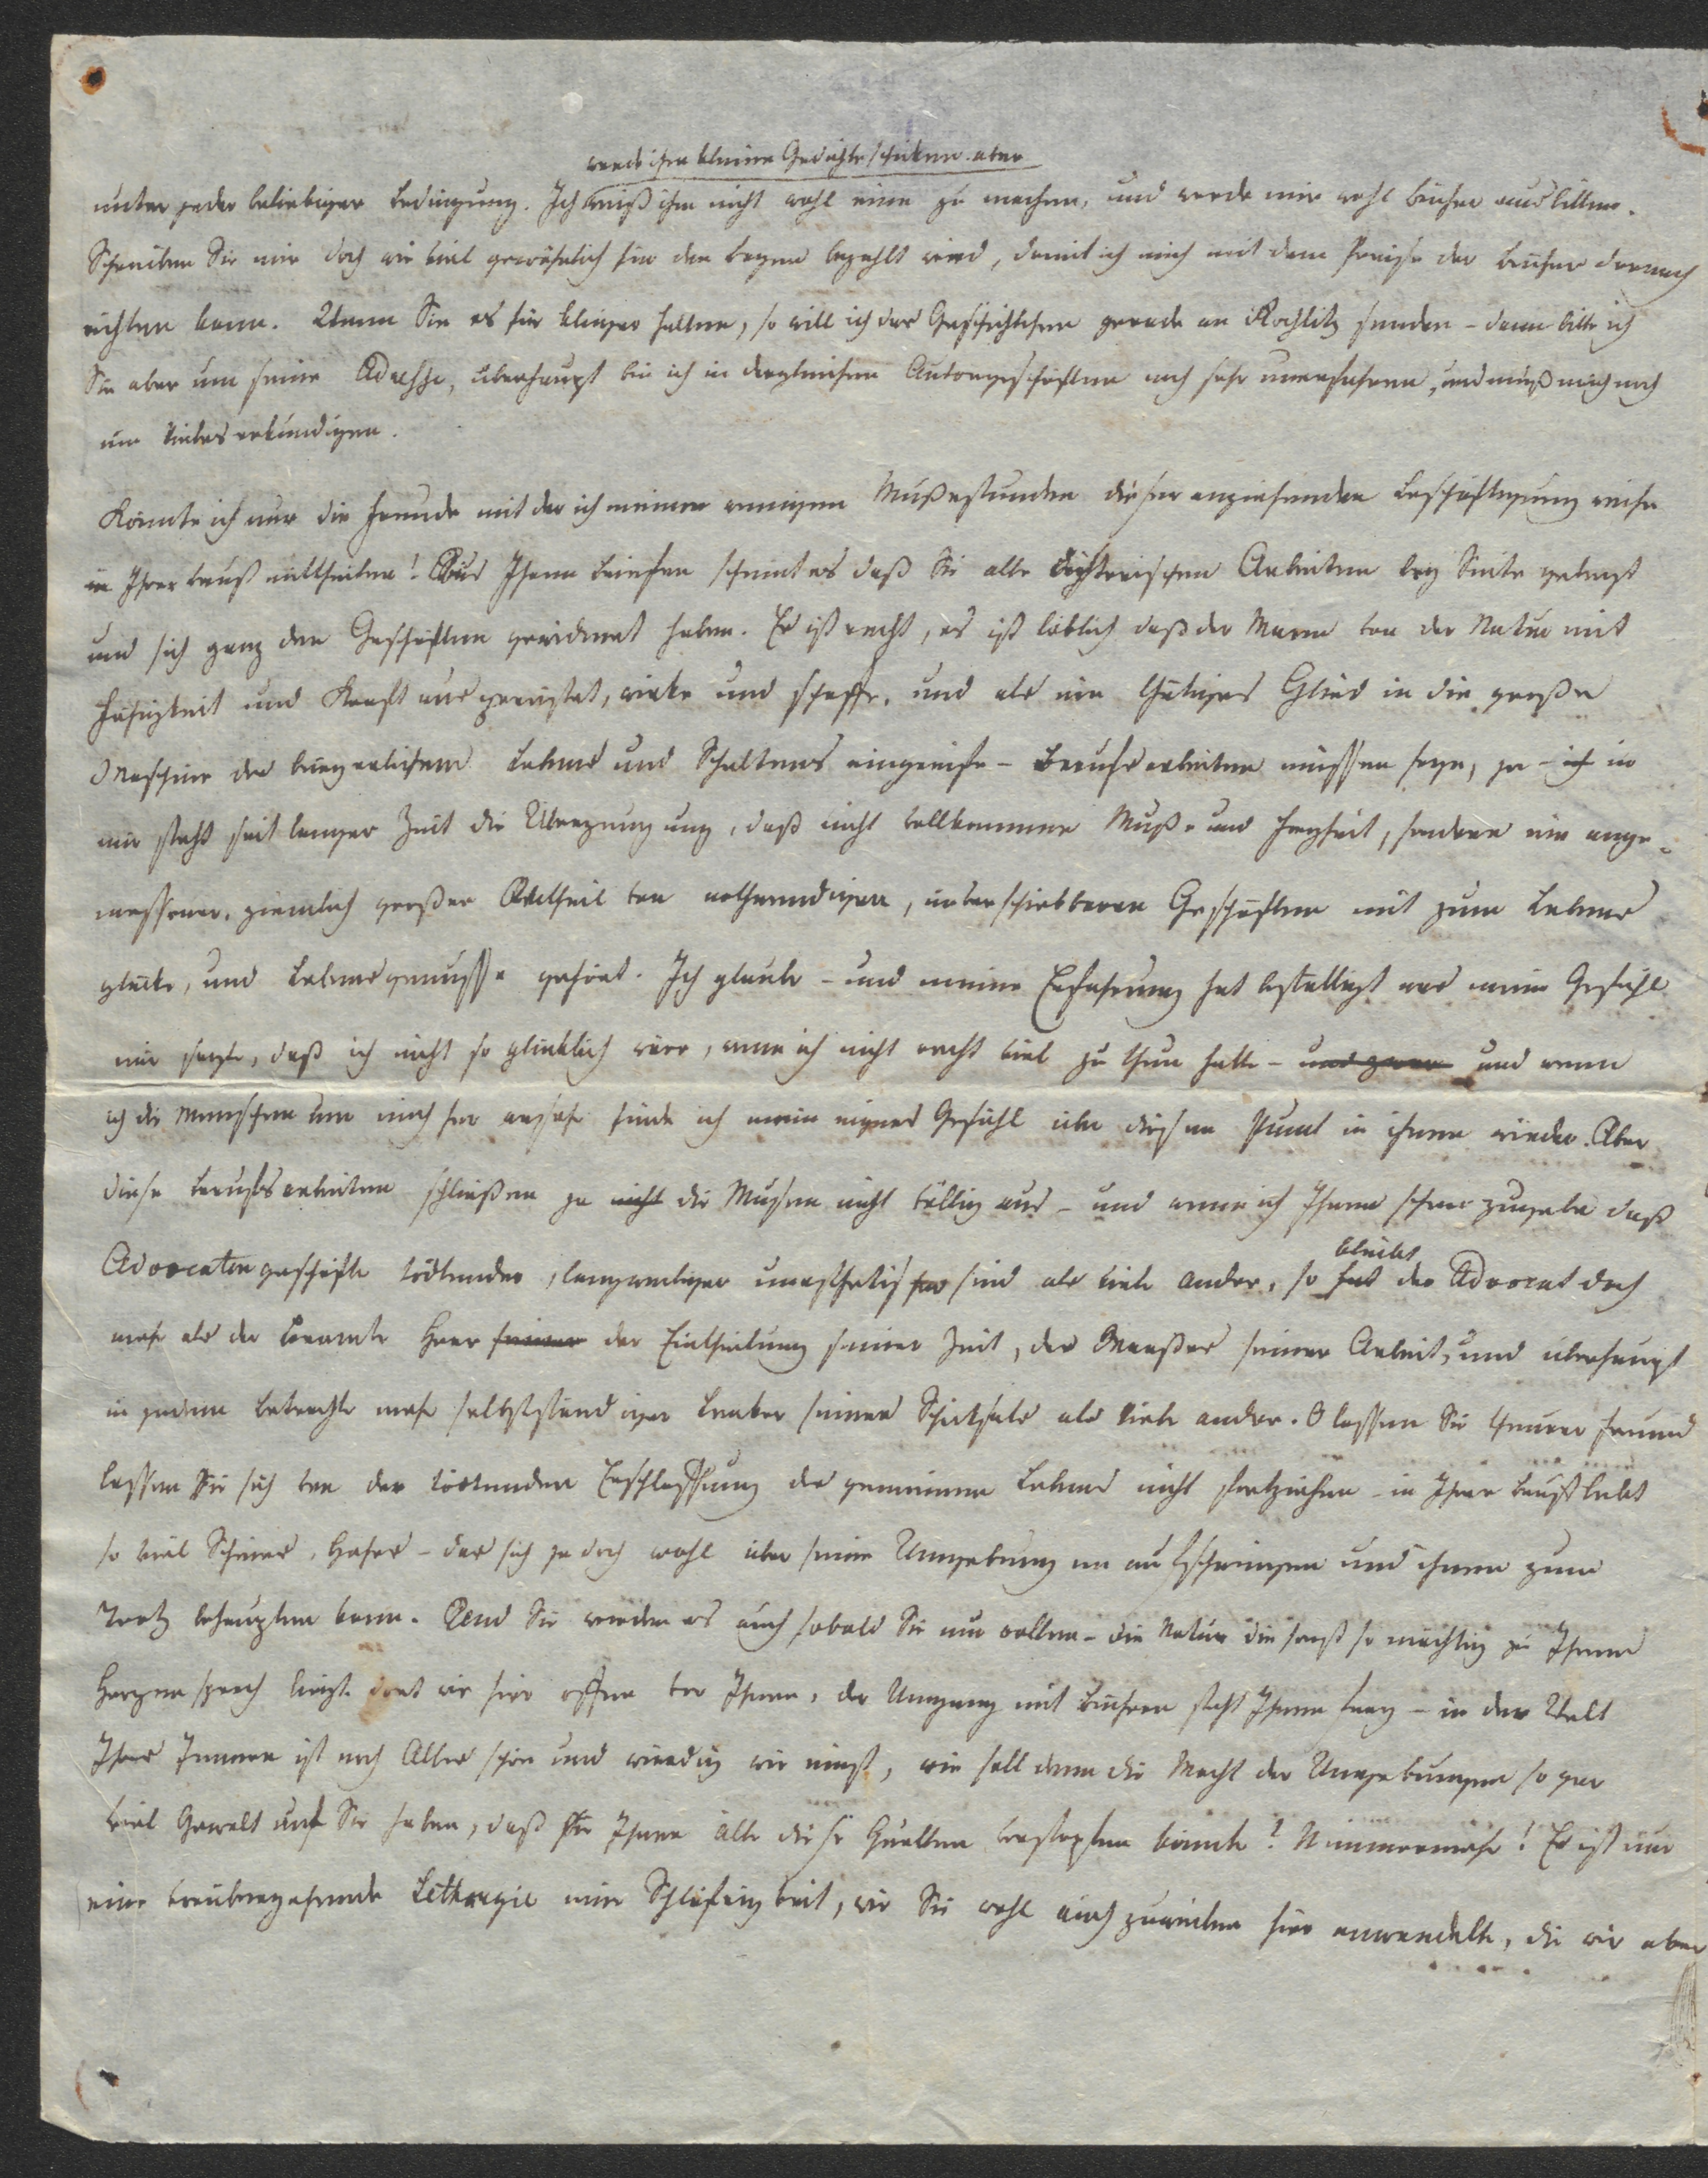 werde ihm kleine Gedichte schicken. aber
unter jeder beliebigen Bedingung. Ich weiß ihm nicht wohl eine zu machen, und werde mir wohl Bücher ausbitten.
Schreiben Sie mir doch wie viel gewöhnlich für den Bogen bezahlt wird, damit ich mich mit dem Preise der Bücher darnach
richten kann. Wenn Sie es für klüger halten, so will ich das Geschichtchen gerade an Rochlitz senden – dann bitte ich
Sie aber um seine Adresse, überhaupt bin ich in dergleichen Autorgeschäften noch sehr unerfahren, und muß mich noch
um Vieles erkundigen.
Könnte ich nur die Freude mit der ich meine wenigen Mußestunden dieser anziehenden Beschäftigung weihe
in Ihrer Brust mittheilen! Aus Ihren Briefen scheint es daß Sie alle dichterischen Arbeiten bey Seite gelegt
und sich ganz den Geschäften gewidmet haben. Es ist recht, es ist löblich daß der Mann von der Natur mit
Fähigkeit und Kraft ausgerüstet, wirke und schaffe, und als ein thätiges Glied in die große
Maschine des bürgerlichen Lebens und Schaltens eingreife – Berufsarbeiten müssen seyn, ja – ich in
mir steht seit langer Zeit die Überzeugung, daß nicht vollkommne Muße und Freyheit, sondern ein ange-
messener, ziemlich großer Antheil von nothwendigen, unverschiebbaren Geschäften mit zum Lebens
glücke, und Lebensgenusse gehört. Ich glaube – und meine Erfahrung hat bestättigt was mein Gefühl
mir sagte, daß ich nicht so glücklich wäre, wenn ich nicht recht viel zu thun hätte – und zwar und wenn
ich die Menschen um mich her ansehe finde ich mein eignes Gefühl über diesen Punct in ihnen wieder. Aber
diese Berufsarbeiten schließen ja nicht die Musen nicht völlig aus – und wenn ich Ihnen schon zugebe daß
Advocatengeschäfte tödtender, langweiliger unaesthetischer sind als viele andre, so hat bleibt der Advocat doch
mehr als der Beamte Herr seiner der Eintheilung seiner Zeit, des Maaßes seiner Arbeit, und überhaupt
in jedem Betrachte mehr selbstständiger Lenker seines Schicksals als viele andre. O lassen Sie theurer Freund
lassen Sie sich von der tödtenden Erschlaffung des gemeinen Lebens nicht fortziehen – in Ihrer Brust lebt
so viel Schönes, Hohes – das sich ja doch wohl über seine Umgebungen aufschwingen und ihnen zum
Trotz behaupten kann. Und Sie werden es auch sobald Sie nur wollen – die Natur die sonst so mächtig zu Ihrem
Herzen sprach liegt dort wie hier offen vor Ihnen, der Umgang mit Büchern steht Ihnen frey – in der Welt
Ihres Innern ist noch Alles schön und würdig wie einst, wie soll denn die Macht der Umgebungen so gar
viel Gewalt auf Sie haben, daß sie Ihnen alle diese Quellen verstopfen könnte? Nimmermehr! Es ist nur
eine vorübergehende Lethargie eine Schläfrigkeit, wie Sie wohl auch zuweilen hier anwandelte, die wir aber